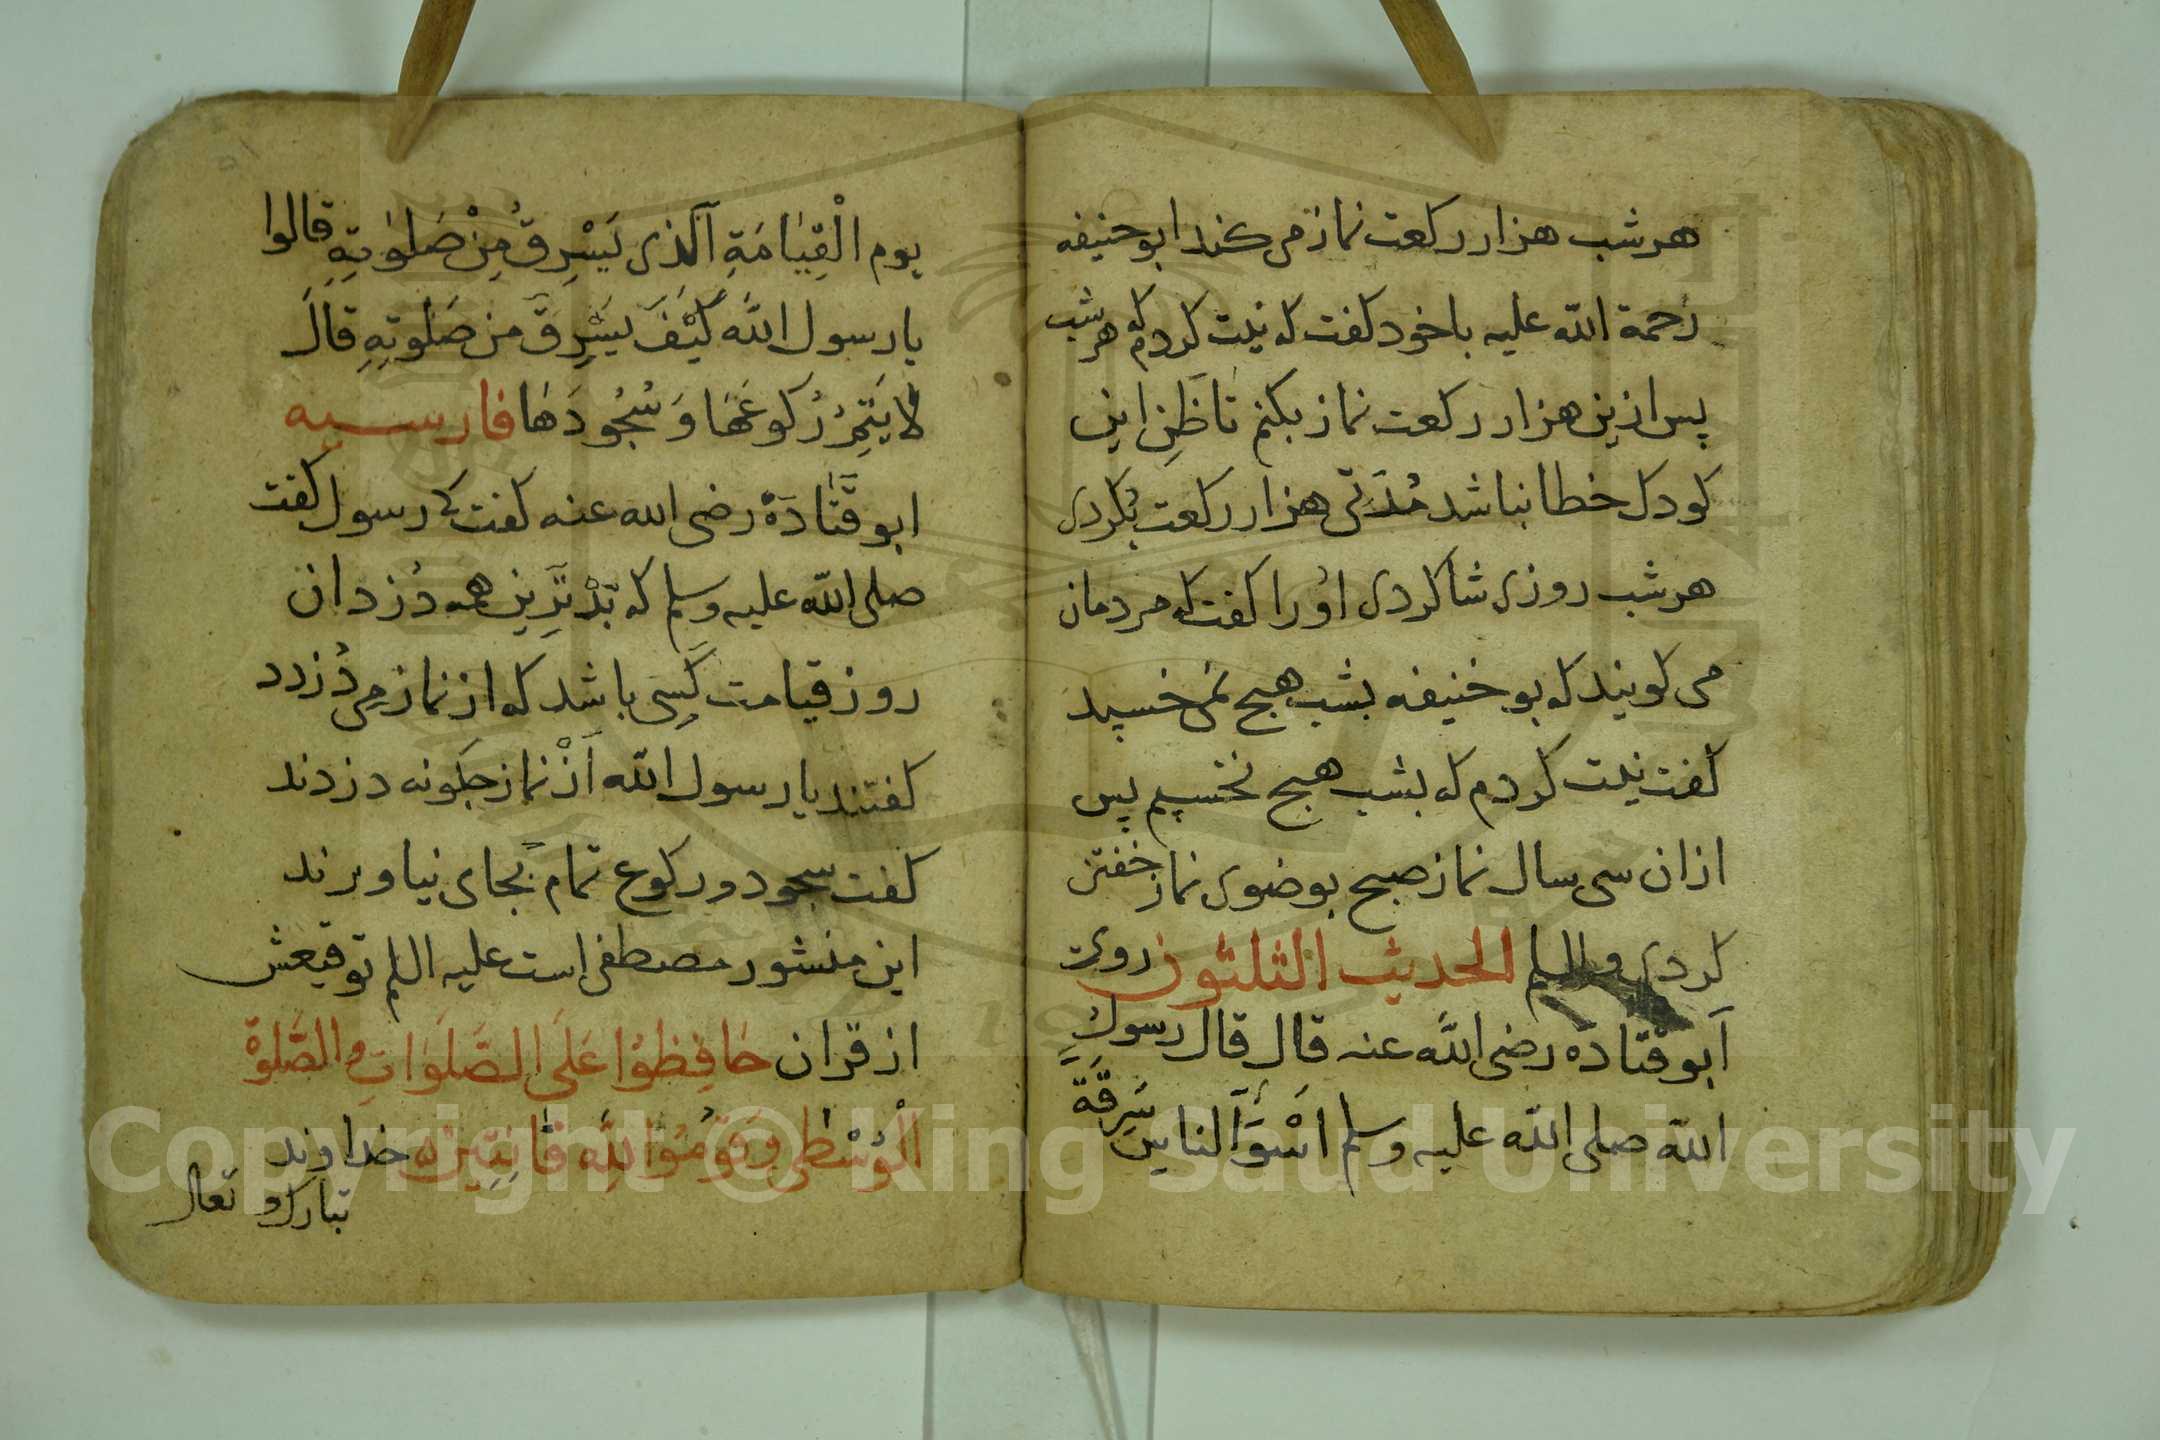 هر شب هزار ركعت نماز می كند ابو حنیفه
رحمة الله علیه با خود كفت كه نیت كردم كه هر شب
پس ازین هزار ركعت نماز بكنم تا ظَنِ این
كودك خطا نباشد مُدَتی هزار ركعت بُكردی
هر شب روزی شاكردی اوُرا كفت كه مردمان
می كویند كه بو حنیفه بشب هیج نمی خسپد
كفت نیت كردم كه بشب هیج نخسپم پس
ازان سی سال نماز صبح بوضوی نماز خفتن
كردی والسلم الحدیث الثلثون روی
اَبو قتاده رضی الله عنه قال قال رسولُ
الله صلی الله علیه وسلم اَسْوَأ الناسِ سَرِقَةً
یوم الْقِیٰامَةِ اَلَّذی یَسْرِقُ مِنْ صَلوٰتِهِ قالوا
یا رسول الله كَیْفَ یَسْرِقُ من صَلوتِهِ قالَ
لا یَتِمُّ رُكوعَهٰا وَ سُجُودَهٰا فارسیه
ابو قَتٰادَهْ رضی الله عنه كفت كه رسول كفت
صلی الله علیه وسلم كه بَدْتَرِین همه دُزدان
روز قیامت كَسِی باشد كه از نماز مِی دُزدد
كفتند یا رسول الله اَزْ نماز جكونه دزدند
كفت سجود و ركوع تمام بجای نیاورند
این منشور مصطفی است علیه السلم توقیعش
از قران حَافِظُوا عَلَی الصَّلَوَاتِ وَ الصَّلوةْ
الْوُسْطٰی وَقوُمُوا لِلّٰهِ قٰانِتِینْ كه خداوند
تبارك و تعالی
Copyright © King Saud University